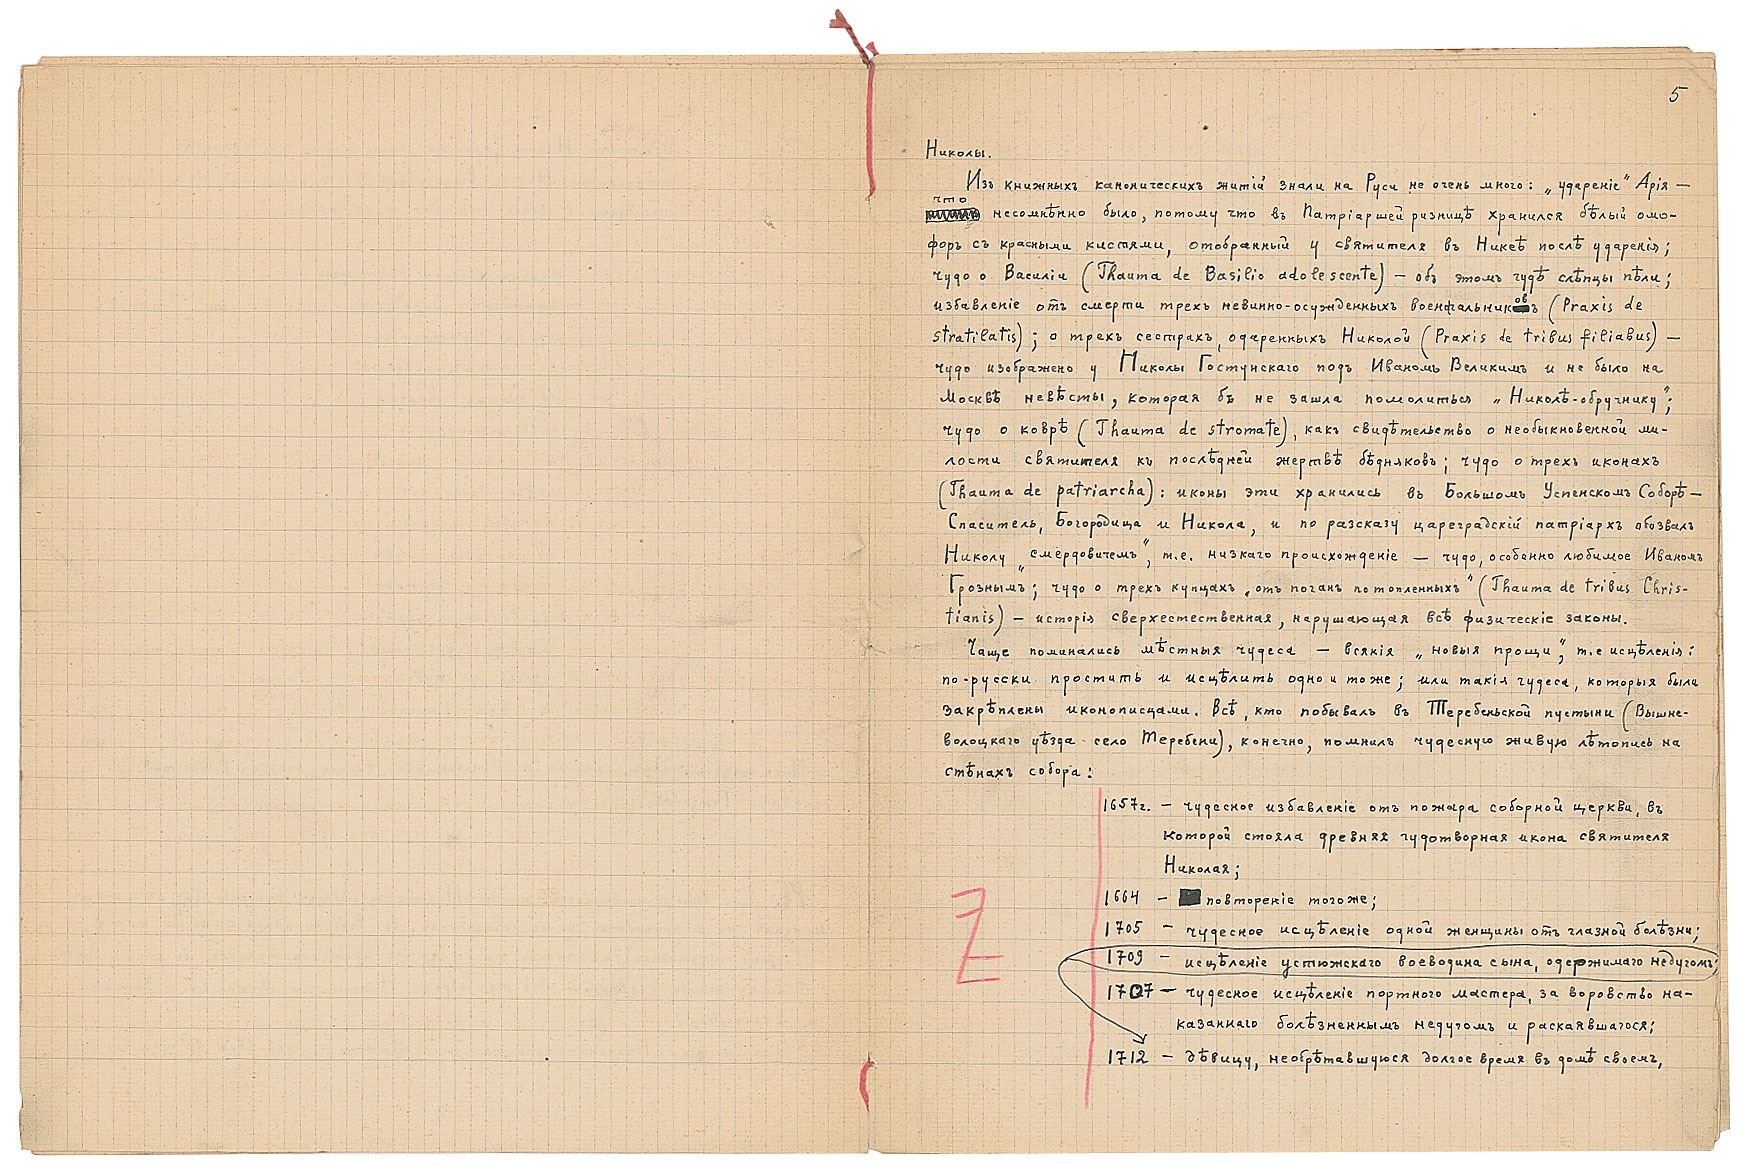 5
Николы.
Изъ книжныхъ каноническихъ житій знали на Руси не очень много: „удареніе“ Арія —
что
несомнѣнно было, потому что въ Патріаршей ризницѣ хранился бѣлый омо-
форъ съ красными кистями, отобранный у святителя въ Никеѣ послѣ ударенія;
чудо о Василіи (Thauma de Basilio adolescente) — объ этомъ чудѣ слѣпцы пѣли;
избавленіе отъ смерти трехъ невинно-осужденныхъ военачальниковъ (Praxis de
stratilatis); о трехъ сестрахъ, одаренныхъ Николой (Praxis de tribus filiabus) —
чудо изображено у Николы Гостунскаго подъ Иваномъ Великимъ и не было на
Москвѣ невѣсты, которая бъ не зашла помолиться „Николѣ-обручнику“;
чудо о коврѣ (Thauma de stromate), какъ свидѣтельство о необыкновенной ми-
лости святителя къ послѣдней жертвѣ бѣдняковъ; чудо о трехъ иконахъ
(Thauma de patriarcha): иконы эти хранились въ Большомъ Успенскомъ Соборѣ —
Спаситель, Богородица и Никола, и по разсказу цареградскій патріархъ обозвалъ
Николу „смердовичемъ“, т.е. низкаго происхожденіе — чудо, особенно любимое Иваномъ
Грознымъ; чудо о трехъ купцахъ „отъ поганъ потопленныхъ“ (Thauma de tribus Chris-
tianis) — исторія сверхестественная, нарушающая всѣ физическіе законы.
Чаще поминались мѣстныя чудеса — всякія „новыя прощи“, т.е исцѣленія:
по-русски простить и исцѣлить одно и тоже; или такія чудеса, которыя были
закрѣплены иконописцами. Всѣ, кто побывалъ въ Теребеньской пустыни (Вышне-
волоцкаго уѣзда село Теребени), конечно, помнилъ чудесную живую лѣтопись на
стѣнахъ собора:
1657г. — чудесное избавленіе отъ пожара соборной церкви, въ
которой стояла древняя чудотворная икона святителя
Николая;
1664 — повтореніе тогоже;
1705 — чудесное исцѣленіе одной женщины отъ глазной болѣзни;
1709 — исцѣленіе устюжскаго воеводина сына, одержимаго недугомъ;
1707 — чудесное исцѣленіе портного мастера, за воровство на-
казаннаго болѣзненнымъ недугомъ и раскаявшагося;
1712 — дѣвицу, необрѣтавшуюся долгое время въ домѣ своемъ,